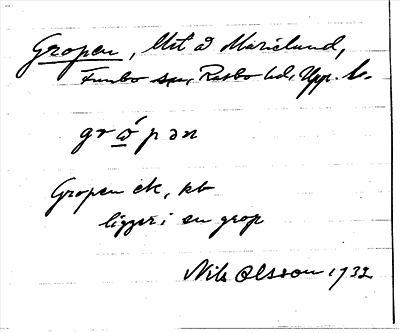 Gropen, litt å Marielund,
Funbo sn, Rasbo hd, Upp. l.
grω̄́pən
Gropen ek, kb
ligger i en grop
Nils Olsson 1932